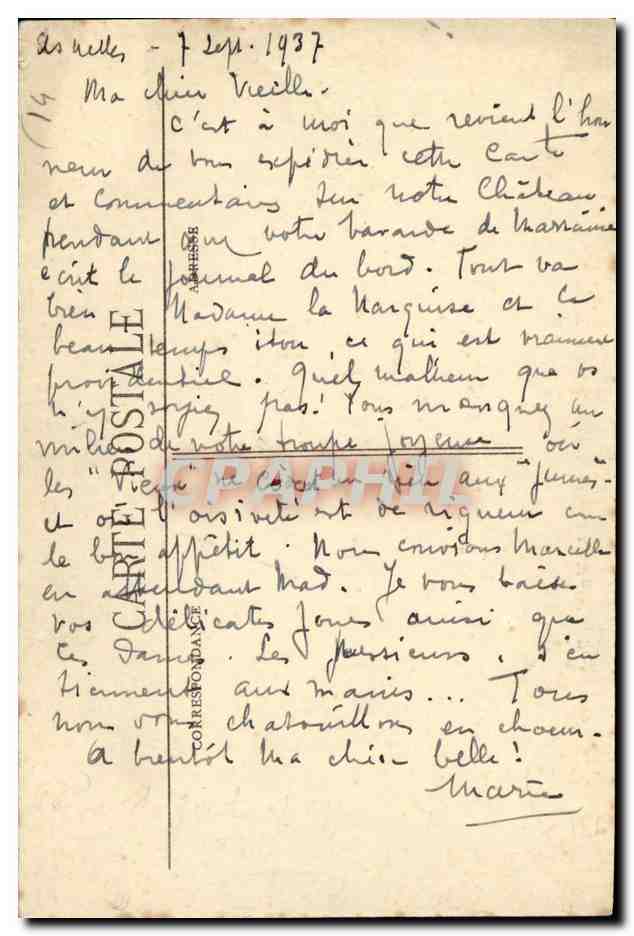 7 Sept. 1937
Ma chère Vieille.
C'est à moi que revient l'hon
neur de vous expédier cette Carte
et Commentaires sur notre Château
pendant que votre bavarde de
écrit le journal du bord. Tout va
bien Madame la Marquise et le
beau temps itou ce qui est vraiment
providentiel. Quel malheur que vs
n'y soyiez pas! Vous manquez au
milieu de votre troupe joyeuse où
les "Vieux" ne cèdent en rien aux "jeunes"
et où l'oisiveté est de rigueur comme
le bon appétit. Nous envions Marcelle
en attendant Mad. Je vous baise
vos délicates joues ainsi que
ces dames. Les messieurs, s'en
tiennent aux mains... Tous
nous vous chatouillons en choeur.
A bientôt Ma chère belle!
Marie
14
CARTE POSTALE
ADRESSE
CORRESPONDANCE
CPAPHIL